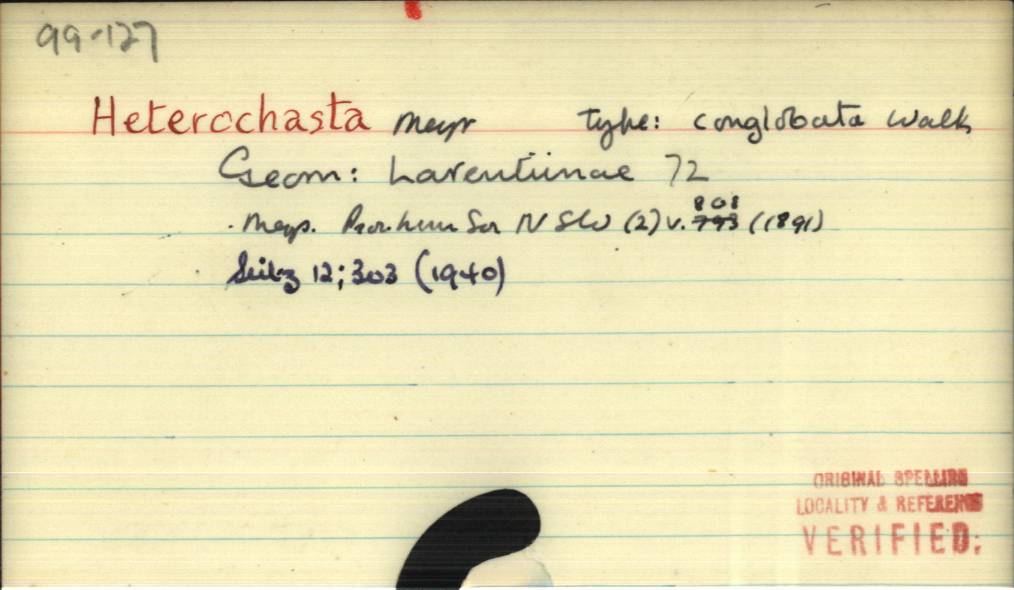 99-127
Heterochasta Meyr type: conglobata Walk
Geom: Larentiinae 72
Meyr. Proc. Linn Soc N SW (2) v. 808 793 (1891)
Seitz 12; 303 (1940)
ORIGINAL SPELLING
LOCALITY & REFERENCE
VERIFIED.